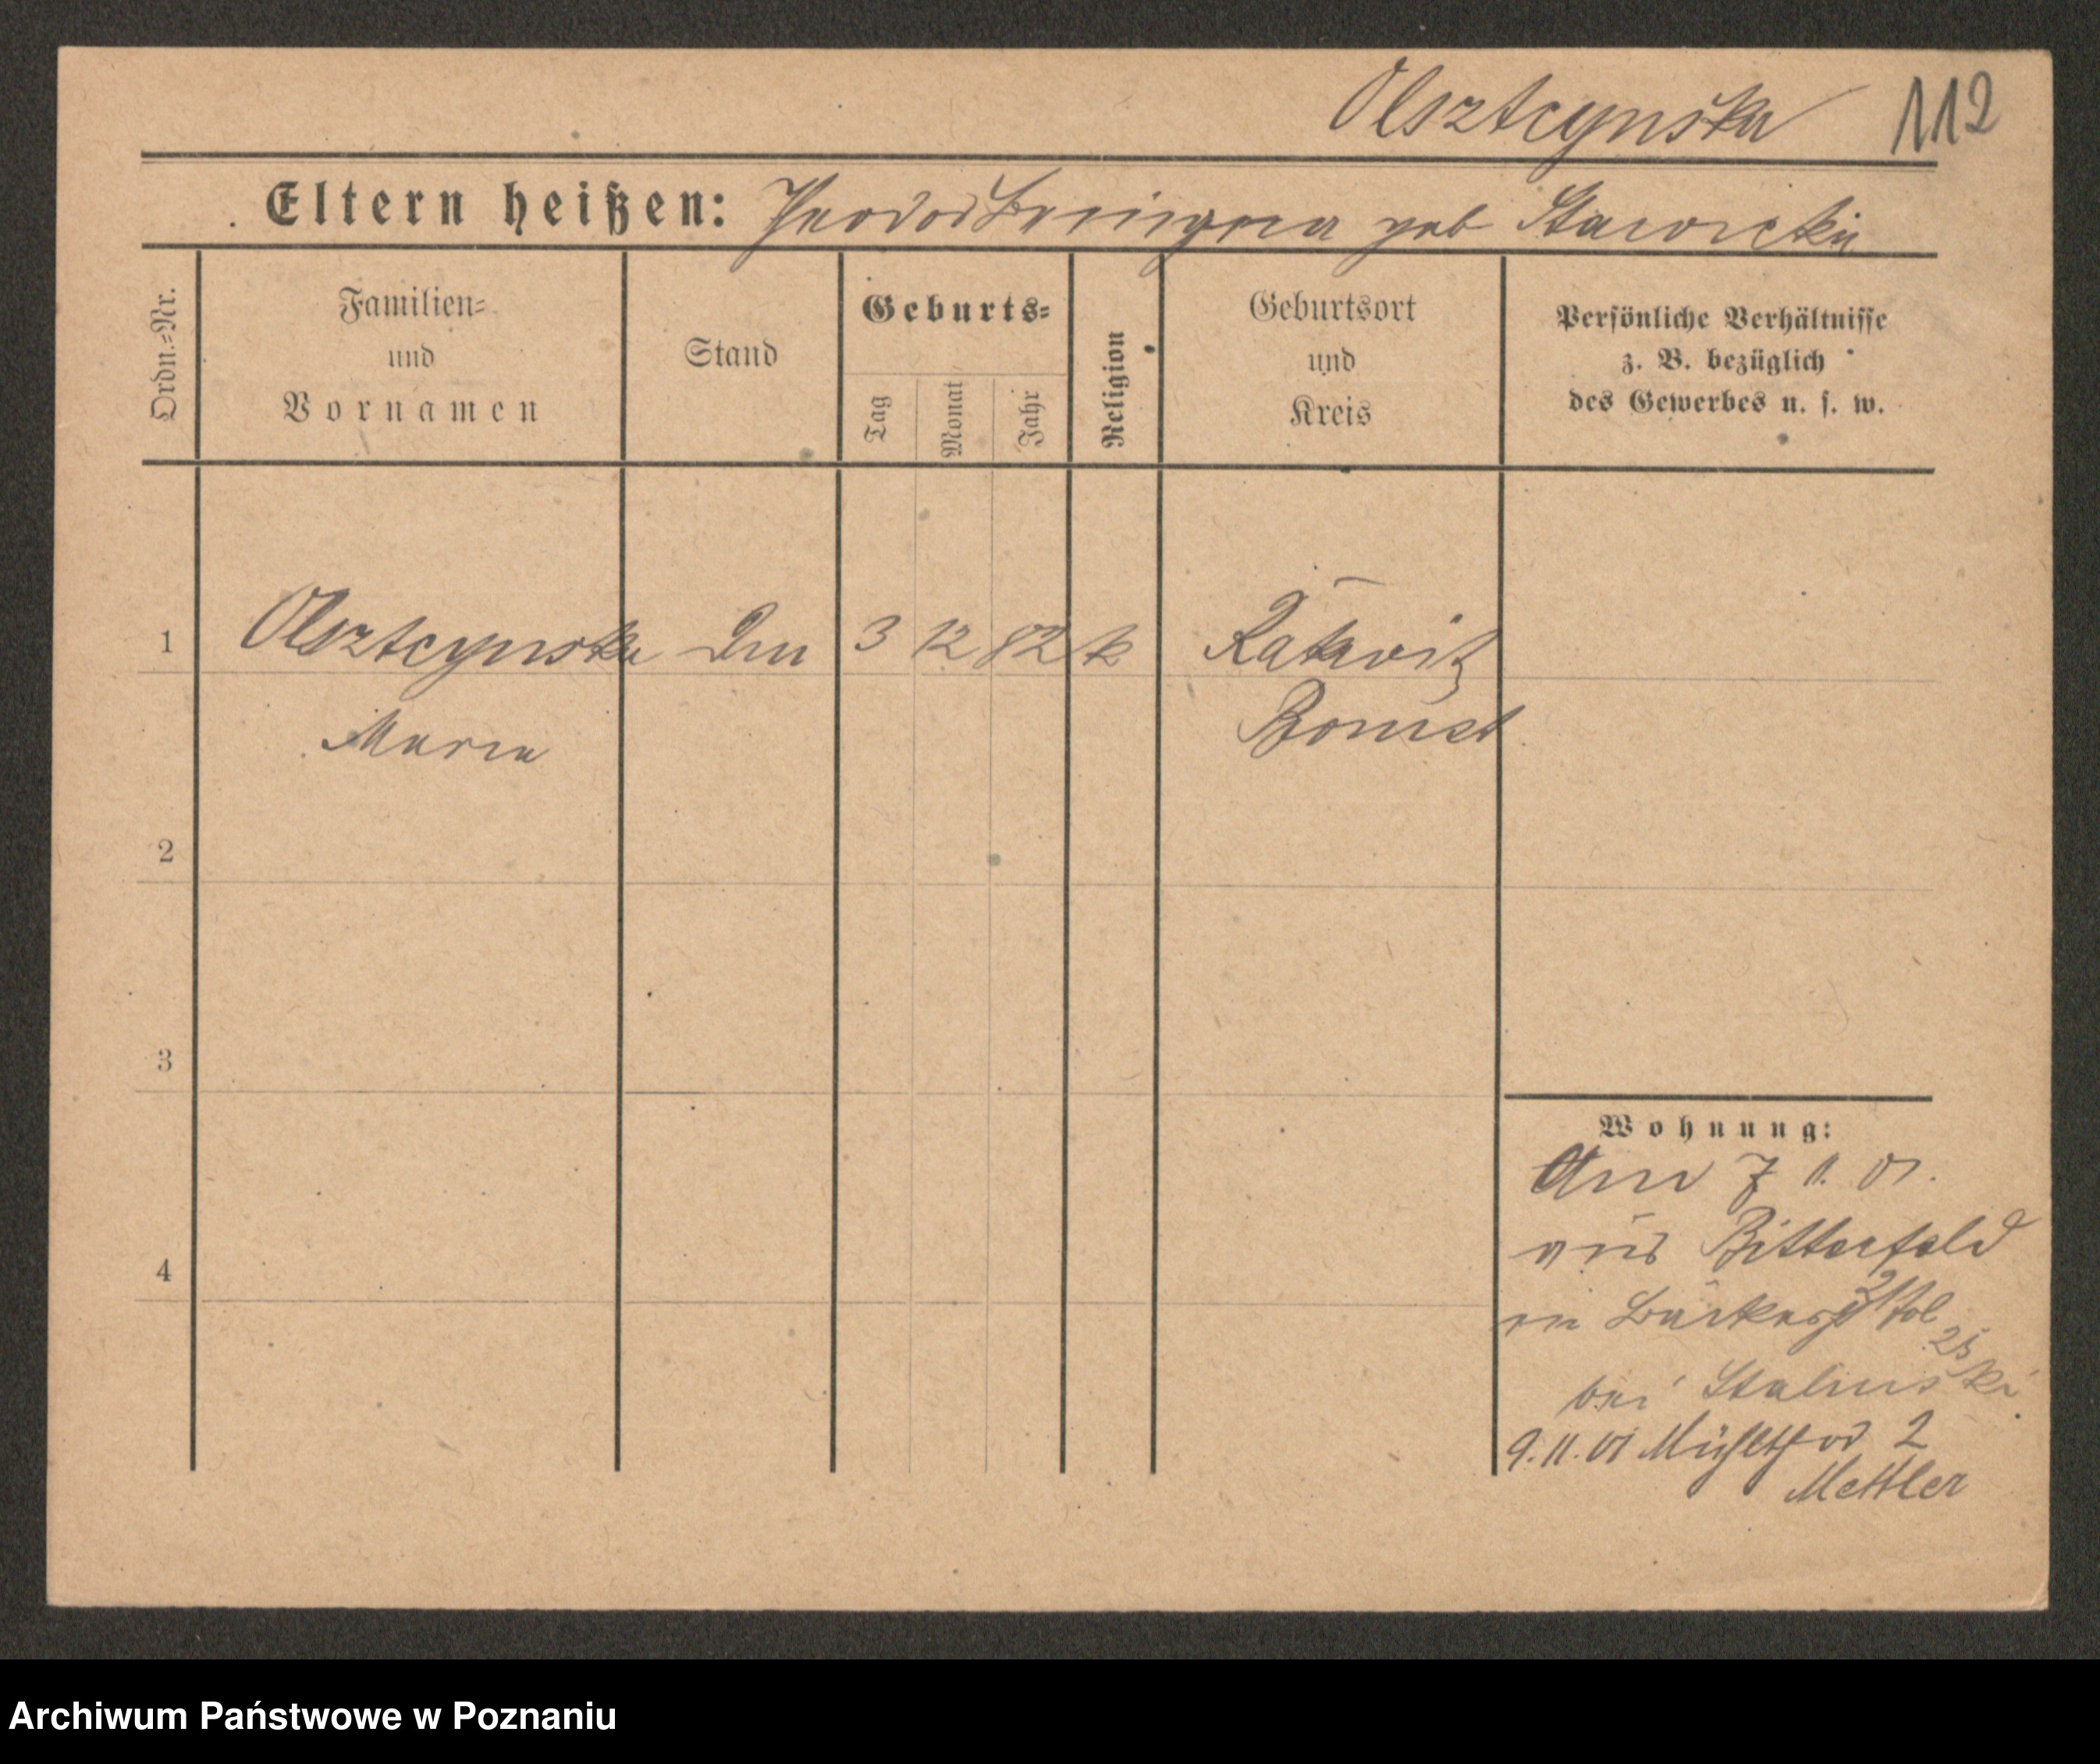 Olsztcynska 112
Eltern heißen: Theodor geb Stawicka
Ordn.-Nr.
Familien-
und
Vornamen
Stand
Geburts-
Tag
Monat
Jahr
Religion
Geburtsort
und
Kreis
Persönliche Verhältnisse
z. B. bezüglich
des Gewerbes u. s. w.
1 Olsztcynska 3 12 82 k Rakwitz
Maria Bomst
2
3
4
Wohnung:
7 11. 01.
aus Bitterfeld
bei Stalinski
9.11.01 Mühlthor 2
Mettler
Archiwum Państwowe w Poznaniu